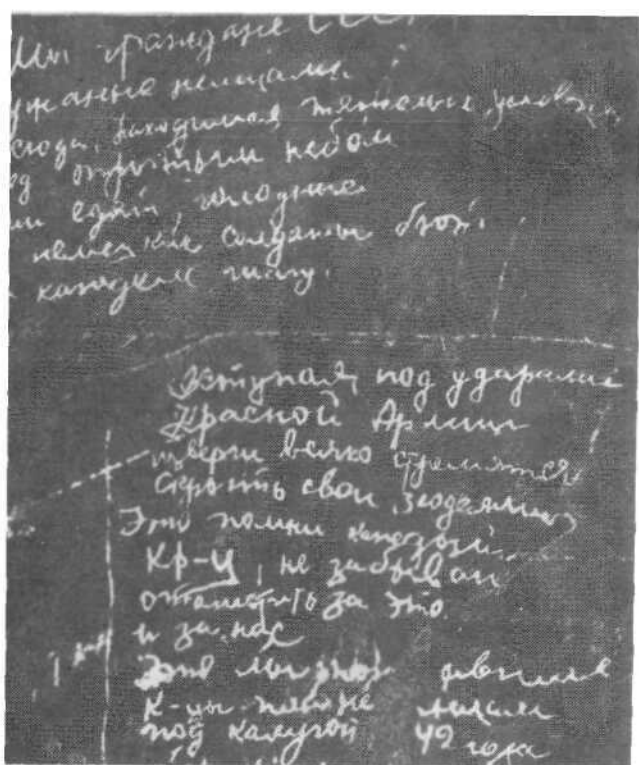 Мы граждане СССР
немцами
сюда, находимся тяжелых условиях
од открытым небом
ни едят, голодные
немецкие солдаты бьют
каждому шагу.
Отступая, под ударами
Красной Армии
изверги всяко стремятся
скрыть свои злодеяния
Это помни каждый
Кр-ц, не забывай
отомстить за это
и за нас
Это
К-цы писали
под Калугой 42 года